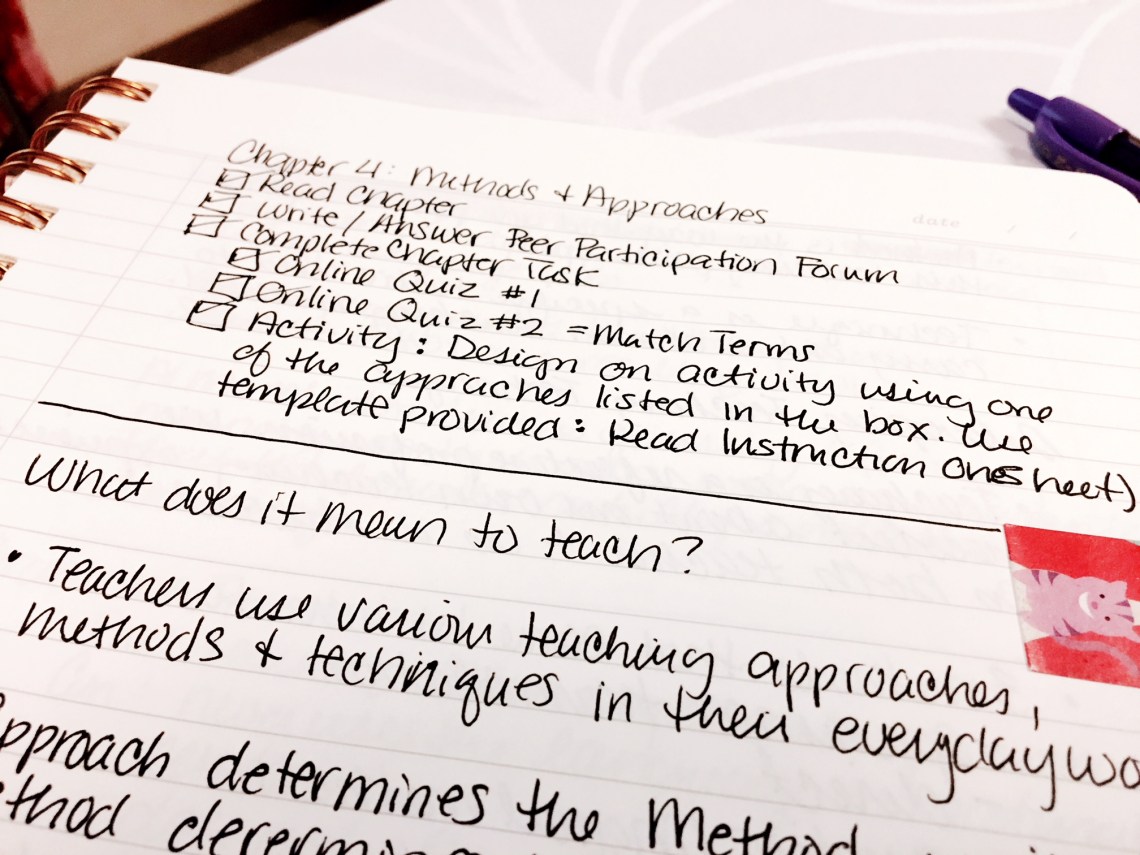 Chapter 4: Methods & Approaches
Read Chapter
Write / Answer Peer Participation Forum
Complete Chapter Task
Online Quiz #1
Online Quiz #2 = Match Terms
Activity: Design on activity using one
of the appraches listed in the box. Use
template provided: Read Instruction Onesheet)
date / /
What does it mean to teach?
• Teachers use various teaching approaches,
methods & techniques in their everyday wo
pproach determines the Method
thod